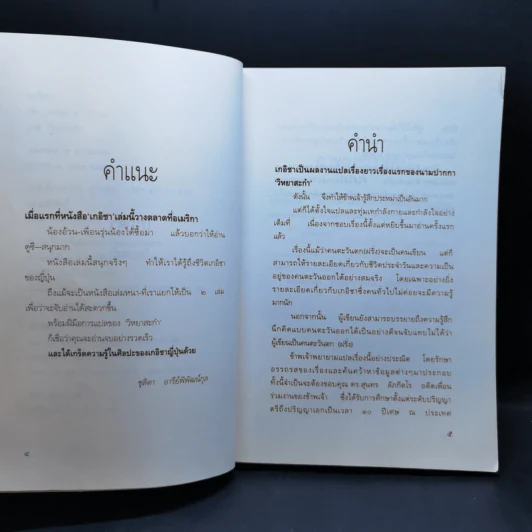 คำแนะ
เมื่อแรกที่หนังสือ'เกอิชา'เล่มนี้วางตลาดที่อเมริกา
น้องอ้วน-เพื่อนรุ่นน้องได้ซื้อมา แล้วบอกว่าให้อ่าน
ดูซิ—สนุกมาก
หนังสือเล่มนี้สนุกจริงๆ ทำให้เราได้รู้ถึงชีวิตเกอิชา
ของญี่ปุ่น
ถึงแม้จะเป็นหนังสือเล่มหนา-ที่เราแยกให้เป็น ๒ เล่ม
เพื่อว่าจะจับอ่านได้สะดวกขึ้น
พร้อมฝีมือการแปลของ 'วิทยาสะกำ'
ก็เชื่อว่าคุณจะอ่านจบอย่างรวดเร็ว
และได้เกร็ดความรู้ในศิลปะของเกอิชาญี่ปุ่นด้วย
ชุติตา อารีย์พิพัฒน์กุล
๔
คำนำ
เกอิชาเป็นผลงานแปลเรื่องยาวเรื่องแรกของนามปากกา
'วิทยาสะกำ'
ดังนั้น จึงทำให้ข้าพเจ้ารู้สึกประหม่าเป็นอันมาก
แต่ก็ได้ตั้งใจแปลและทุ่มเทกำลังกายและกำลังใจอย่าง
เต็มที่ เนื่องจากชอบเรื่องนี้ตั้งแต่หยิบขึ้นมาอ่านครั้งแรก
แล้ว
เรื่องนี้แม้ว่าคนตะวันตก(ฝรั่ง)จะเป็นคนเขียน แต่ก็
สามารถให้รายละเอียดเกี่ยวกับชีวิตประจำวันและความเป็น
อยู่ของคนตะวันออกได้อย่างสมจริง โดยเฉพาะอย่างยิ่ง
รายละเอียดเกี่ยวกับเกอิชาซึ่งคนทั่วไปไม่ค่อยจะมีความรู้
มากนัก
นอกจากนั้น ผู้เขียนยังสามารถบรรยายถึงความรู้สึก
นึกคิดแบบคนตะวันออกได้เป็นอย่างดีจนจับแทบไม่ได้ว่า
ผู้เขียนเป็นคนตะวันตก (ฝรั่ง)
ข้าพเจ้าพยายามแปลเรื่องนี้อย่างประณีต โดยรักษา
อรรถรสของเรื่องและค้นคว้าหาข้อมูลต่างๆมาประกอบ
ทั้งนี้จำเป็นจะต้องขอบคุณ ดร.สุนทร ภักกิตโร อดีตเพื่อน
ร่วมงานของข้าพเจ้า ซึ่งได้รับการศึกษาตั้งแต่ระดับปริญญา
ตรีถึงปริญญาเอกเป็นเวลา ๑๐ ปีเศษ ณ ประเทศ
๕